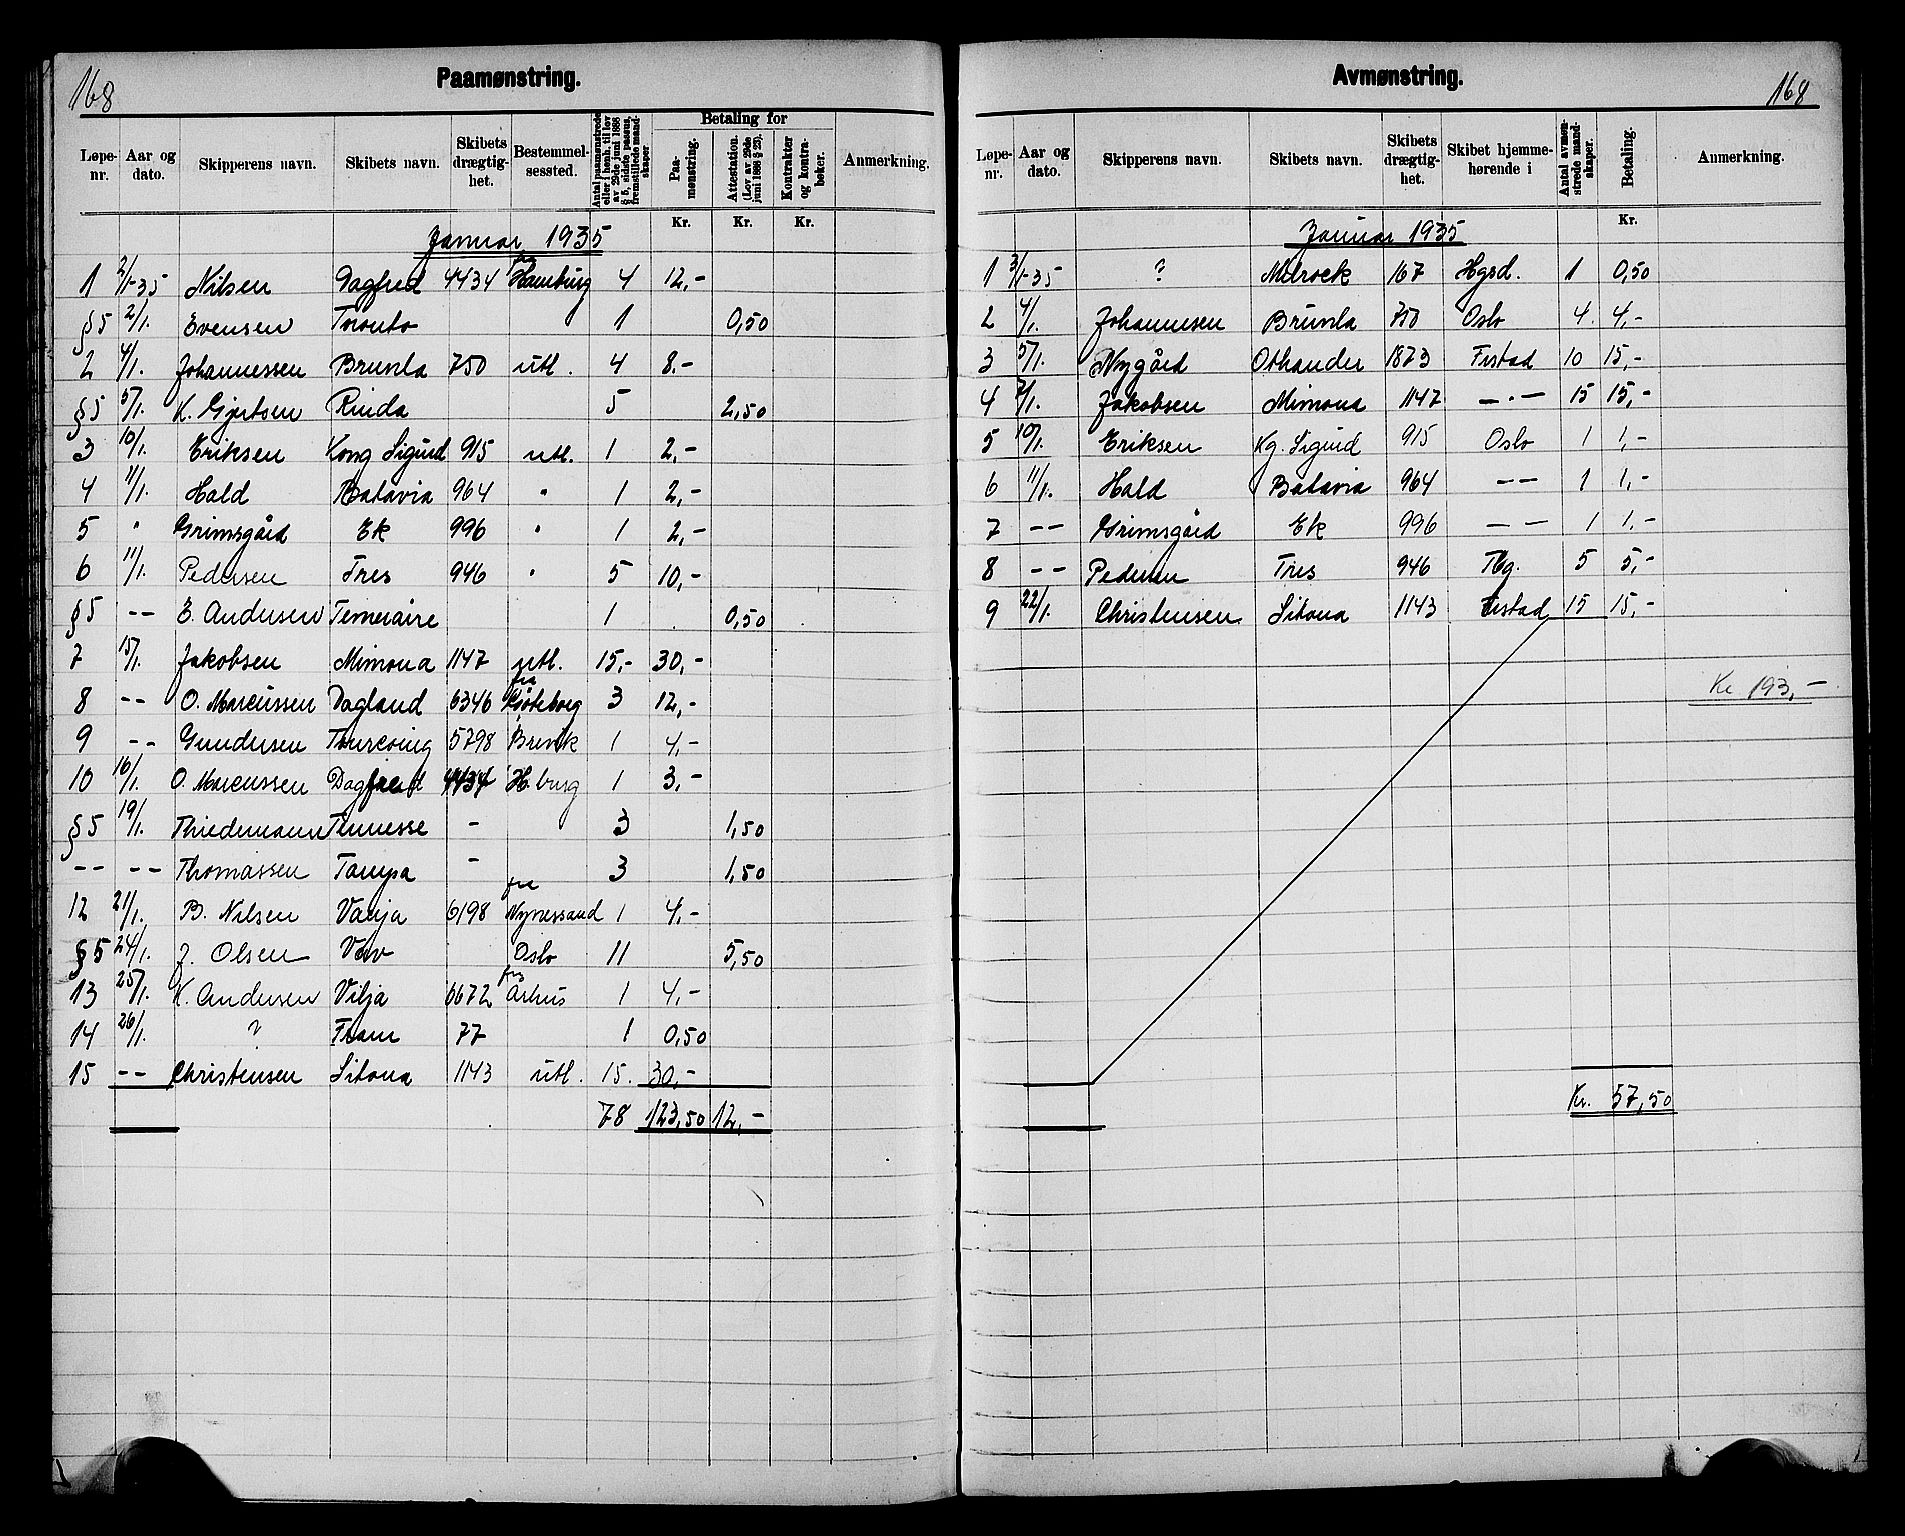 168
Paamønstring.
Løpe-nr. Aar og dato. Skipperens navn. Skibets navn. Skibets drægtig-het. Bestemmel-sessted. Antal paamønstrede eller i henh. til lov av 29de juni 1888 § 5, sidste passus, fremstillede mand-skaper Betaling for Paa-mønstring. Attestation. (Lov av 29de juni 1888 § 23). Kontrakter og kontra-bøker. Anmerkning.
Kr. Kr. Kr.
Januar 1935
1 2/1-35 Nilsen Dagfred 4434 fra Hamburg 4 12,-
§5 2/1. Evensen Toronto 1 0,50
2 4/1. Johannessen Brunla 750 utl. 4 8.-
§5 5/1. K. Gjertsen Rinda 5 2,50
3 10/1. Eriksen Kong Sigurd 915 utl. 1 2,-
4 11/1. Hald Batavia 964 " 1 2,-
5 " Grimsgård Ek 996 " 1 2,-
6 11/1. Pedersen Tres 946 " 5 10,-
§5 -- E. Andersen Temeraire 1 0,50
7 15/1. Jakobsen Mimona 1147 utl. 15,- 30,-
8 -- O. Marcussen Dagland 6346 fra Göteborg 3 12,-
9 -- Gundersen Tourcoing 5798 Brevik 1 4,-
10 16/1. O. Marcussen Dagfred 4434 H.burg 1 3,-
§5 19/1. Thiedemann Tennesse - 3 1,50
-- -- Thomassen Tampa - 3 1,50
12 21/1. B. Nilsen Vanja 6198 fra Nynessand 1 4,-
§5 24/1. J. Olsen Vav Oslo 11 5,50
13 25/1. K. Andersen Vilja 6672 fra Århus 1 4,-
14 26/1. ? Fram 77 1 0,50
15 -- Christensen Sitona 1143 utl. 15. 30,-
78 123,50 12,-
Avmønstring.
168
Løpe-nr. Aar og dato. Skipperens navn. Skibets navn. Skibets drægtig-het. Skibet hjemme-hørende i Antal avmøn-strede mand-skaper. Betaling. Anmerkning.
Kr.
Januar 1935
1 3/1-35 ? Milrock 167 Hgsd. 1 0,50
2 4/1. Johannesen Brunla 750 Oslo 4. 4,-
3 5/1. Nygård Othander 1873 Frstad 10 15,-
4 7/1. Jakobsen Mimona 1147 -"- 15 15,-
5 10/1. Eriksen Kg. Sigurd 915 Oslo 1 1,-
6 11/1. Hald Batavia 964 -- 1 1,-
7 -- Grimsgård Ek 996 -- 1 1,-
8 -- Pedersen Tres 946 Tbg. 5 5,-
9 22/1. Christensen. Sitona 1143 Frstad 15 15,-
Kr 193,-
Kr. 57,50